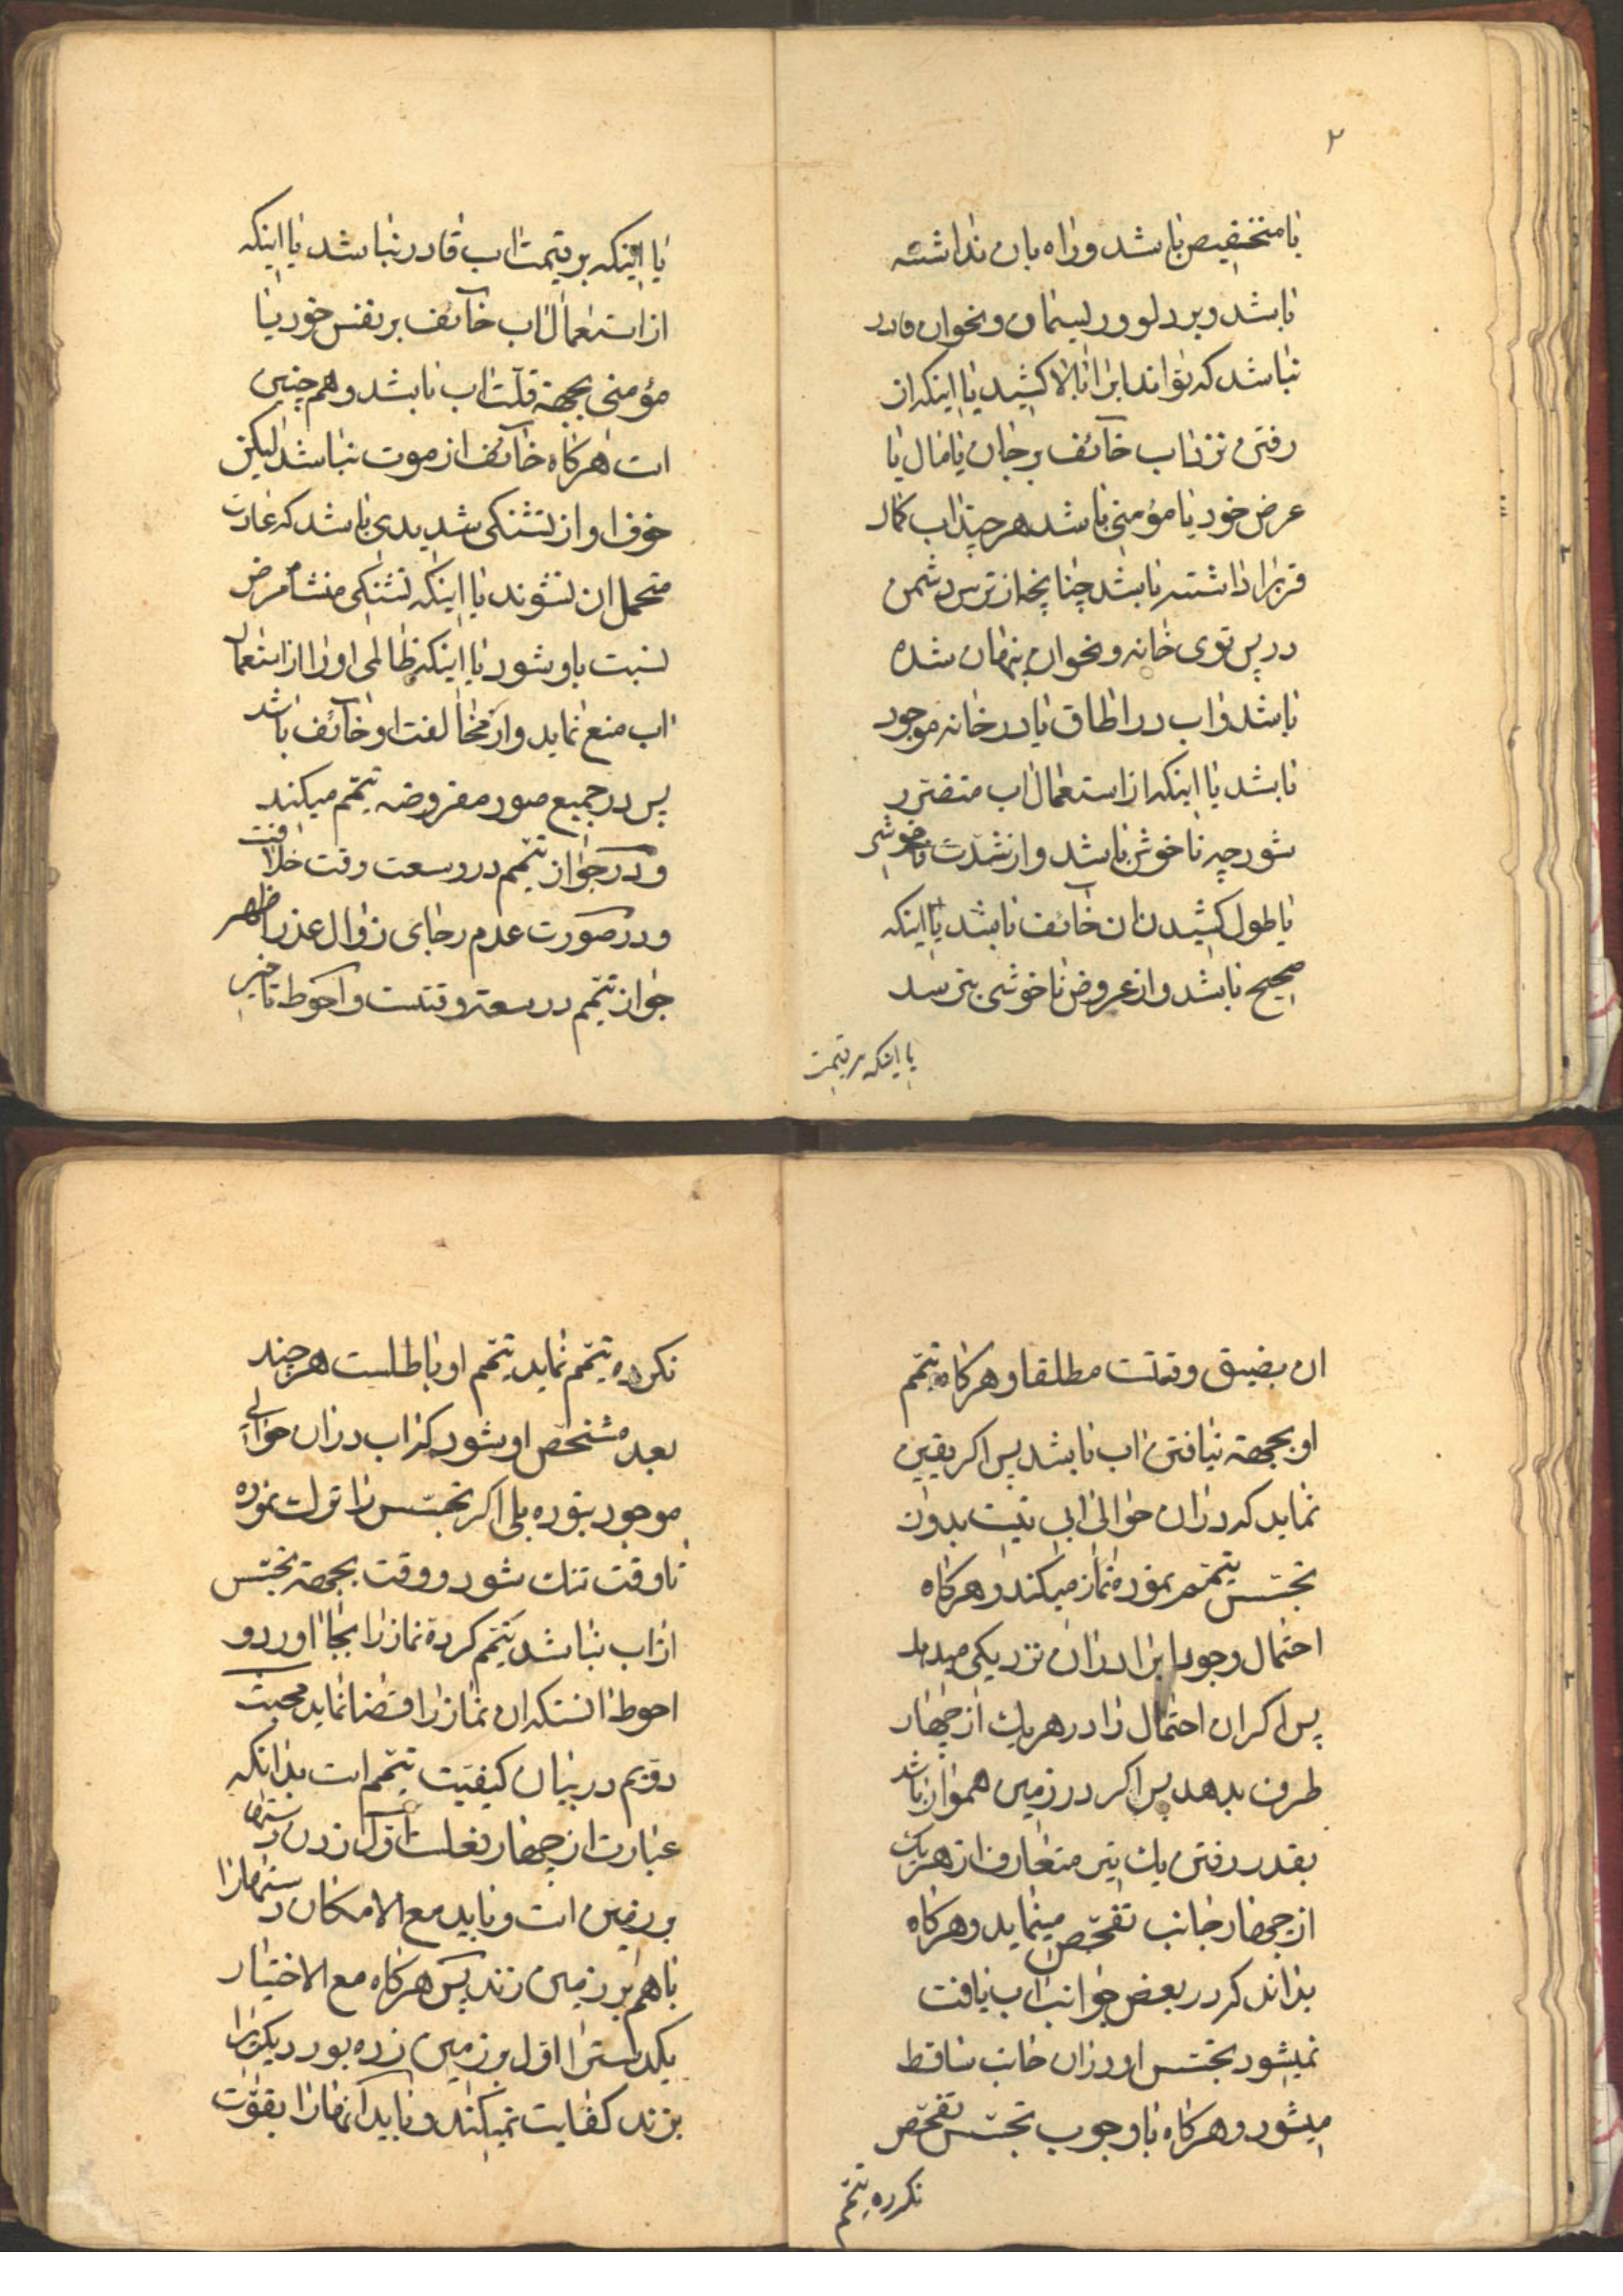 ۲
یا متخصص باشد و راه بان نداشته
باشد و بر دلو و ریسمان و نحوان قادر
نباشد که تواند ابرا بالا کشید یا اینکه از
رفتن نزد اب خائف بر جان یا مال یا
عرض خود یا مؤمنی باشد هر چند اب کمال
قرب را داشته باشد چنانچه از ترس دشمن
در پس توی خانه و نحوان پنهان شده
باشد و اب در اطاق یا در خانه موجود
باشد یا اینکه از استعمال اب متضرر
شود چه ناخوش باشد و از شدت ناخوشی
یا طول کشیدن ان خائف باشد یا اینکه
صحیح باشد و از عروض ناخوشی بترسد
یا اینکه بر قیمت
یا اینکه بر قیمت اب قادر نباشد یا اینکه
از استعمال اب خائف بر نفس خود یا
مؤمنی بجهة قلت اب باشد و هم چنین
است هر کاه خائف از موت نباشد لیکن
خوف او از تشنکی شدیدی باشد که عادت
متحمل ان نشوند یا اینکه تشنکی منشاء مرض
نسبت باو شود یا اینکه ظالمی او را از استعمال
اب منع نماید و از مخالفت او خائف باشد
پس در جمیع صور مفروضه تیمم میکند
و در جواز تیمم در وسعت وقت خلافت
و در صورت عدم رجای زوال عذر اظهر
جواز تیمم در سعة وقتست و احوط تاخیر
ان بضیق وقتست مطلقا و هر کاه تیمم
او بجهة نیافتن اب باشد پس اکر یقین
نماید که در ان حوالی ابی نیست بدون
تجسس تیمم نموده نماز میکند و هر کاه
احتمال وجود ابرا در ان نزدیکی میدهد
پس اکر ان احتمال را در هر یک از چهار
طرف بدهد پس اکر در زمین هموار باشد
بقدر رفتن یک تیر متعارف از هر یک
از چهار جانب تفحص مینماید و هر کاه
بداند که در بعض جوانب اب یافت
نمیشود تجسس او در ان جانب ساقط
میشود و هر کاه با وجوب تجسس تفحص
نکرده تیمم
نکرده تیمم نماید تیمم او باطلست هر چند
بعد مشخص او شود که اب در ان حوالی
موجود نبوده بلی اکر تجسس را ترک نموده
تا وقت تنک شود و وقت بجهة تجسس
از اب نباشد تیمم کرده نماز را بجا اورد و
احوط انستکه ان نماز را قضا نماید مبحث
دویم در بیان کیفیت تیمم است بدانکه
عبارت از چهار فعلست اول زدن دستها
بر زمین است و باید مع الامکان دستها را
با هم بر زمین زند پس هر کاه مع الاختیار
یکدست را اول بر زمین زده بود دیکریرا
بزند کفایت نمیکند و باید انها را بقوت